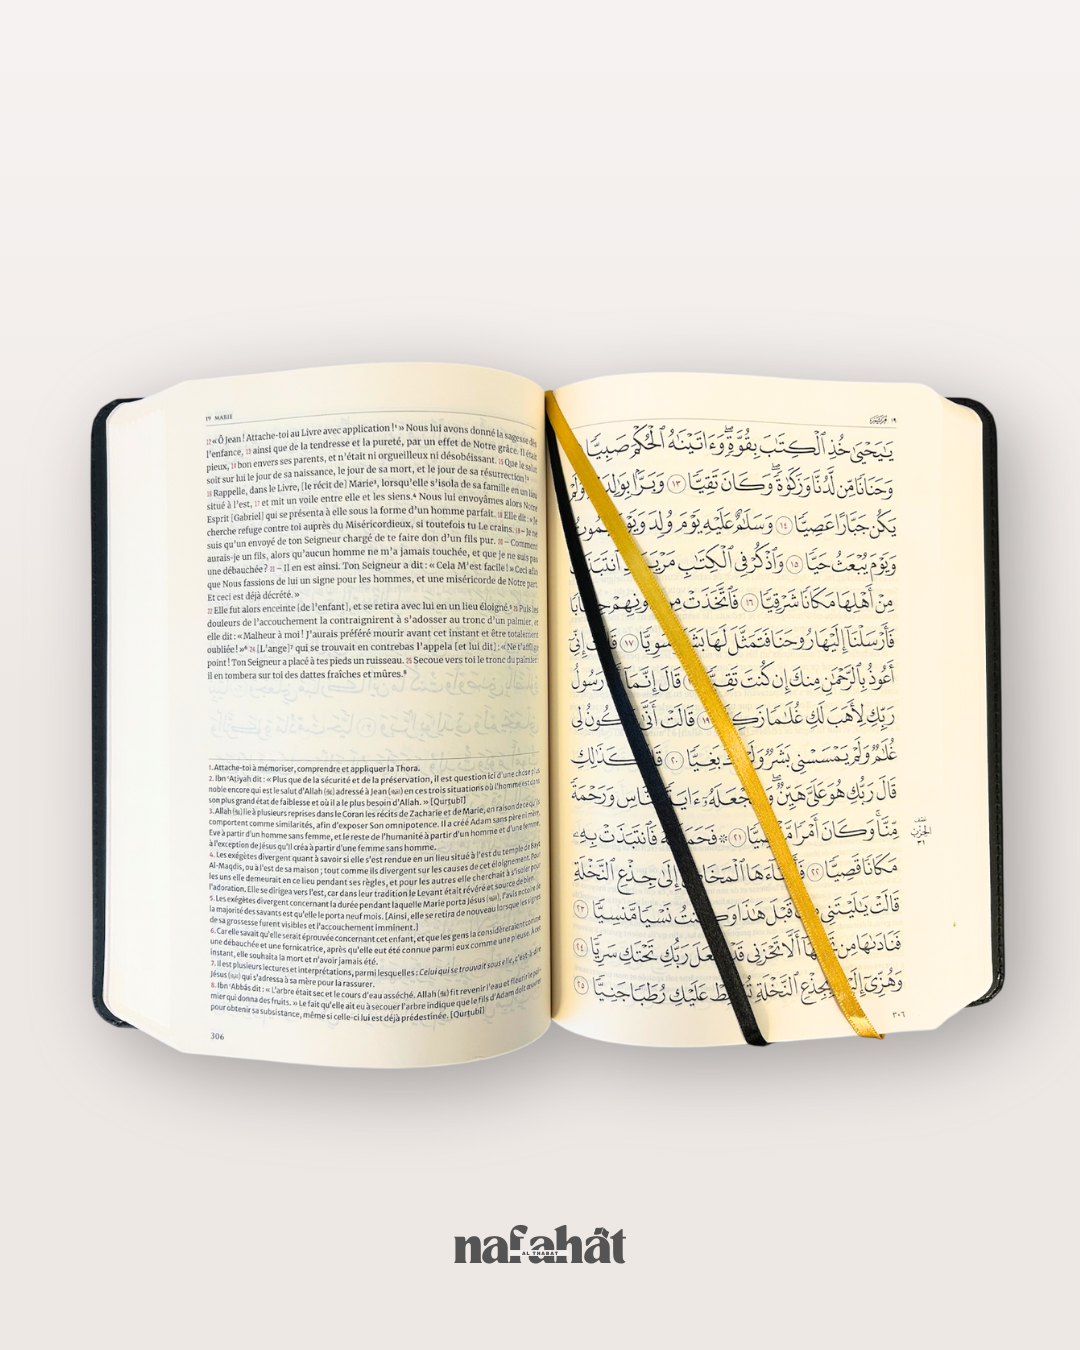 19 MARIE
12 « Ô Jean ! Attache-toi au Livre avec application !¹ » Nous lui avons donné la sagesse dès
l'enfance, 13 ainsi que de la tendresse et la pureté, par un effet de Notre grâce. Il était
pieux, 14 bon envers ses parents, et n'était ni orgueilleux ni désobéissant. 15 Que le salut
soit sur lui le jour de sa naissance, le jour de sa mort, et le jour de sa résurrection !²
16 Rappelle, dans le Livre, [le récit de] Marie³, lorsqu'elle s'isola de sa famille en un lieu
situé à l'est, 17 et mit un voile entre elle et les siens.⁴ Nous lui envoyâmes alors Notre
Esprit [Gabriel] qui se présenta à elle sous la forme d'un homme parfait. 18 Elle dit : « Je
cherche refuge contre toi auprès du Miséricordieux, si toutefois tu Le crains. 19 – Je ne
suis qu'un envoyé de ton Seigneur chargé de te faire don d'un fils pur. 20 – Comment
aurais-je un fils, alors qu'aucun homme ne m'a jamais touchée, et que je ne suis pas
une débauchée ? 21 – Il en est ainsi. Ton Seigneur a dit : « Cela M'est facile ! » Ceci afin
que Nous fassions de lui un signe pour les hommes, et une miséricorde de Notre part.
Et ceci est déjà décrété. »
22 Elle fut alors enceinte [de l'enfant], et se retira avec lui en un lieu éloigné.⁵ 23 Puis les
douleurs de l'accouchement la contraignirent à s'adosser au tronc d'un palmier, et
elle dit : « Malheur à moi ! J'aurais préféré mourir avant cet instant et être totalement
oubliée ! »⁶ 24 [L'ange]⁷ qui se trouvait en contrebas l'appela [et lui dit] : « Ne t'afflige
point ! Ton Seigneur a placé à tes pieds un ruisseau. 25 Secoue vers toi le tronc du palmier :
il en tombera sur toi des dattes fraîches et mûres.⁸
1. Attache-toi à mémoriser, comprendre et appliquer la Thora.
2. Ibn 'Atiyah dit : « Plus que de la sécurité et de la préservation, il est question ici d'une chose plus
noble encore qui est le salut d'Allah (ﷻ) adressé à Jean (ﷺ) en ces trois situations où l'homme est dans
son plus grand état de faiblesse et où il a le plus besoin d'Allah. » [Qurṭubî]
3. Allah (ﷻ) lie à plusieurs reprises dans le Coran les récits de Zacharie et de Marie, en raison de ce qu'ils
comportent comme similarités, afin d'exposer Son omnipotence. Il a créé Adam sans père ni mère,
Ève à partir d'un homme sans femme, et le reste de l'humanité à partir d'un homme et d'une femme,
à l'exception de Jésus qu'il créa à partir d'une femme sans homme.
4. Les exégètes divergent quant à savoir si elle s'est rendue en un lieu situé à l'est du temple de Bayt
Al-Maqdis, ou à l'est de sa maison ; tout comme ils divergent sur les causes de cet éloignement. Pour
les uns elle demeurait en ce lieu pendant ses règles, et pour les autres elle cherchait à s'isoler pour
l'adoration. Elle se dirigea vers l'est, car dans leur tradition le Levant était révéré et source de bien.
5. Les exégètes divergent concernant la durée pendant laquelle Marie porta Jésus (ﷺ), l'avis notoire de
la majorité des savants est qu'elle le porta neuf mois. [Ainsi, elle se retira de nouveau lorsque les signes
de sa grossesse furent visibles et l'accouchement imminent.]
6. Car elle savait qu'elle serait éprouvée concernant cet enfant, et que les gens la considéreraient comme
une débauchée et une fornicatrice, après qu'elle eut été connue parmi eux comme une pieuse. À cet
instant, elle souhaita la mort et n'avoir jamais été.
7. Il est plusieurs lectures et interprétations, parmi lesquelles : Celui qui se trouvait sous elle, c'est-à-dire
Jésus (ﷺ) qui s'adressa à sa mère pour la rassurer.
8. Ibn 'Abbâs dit : « L'arbre était sec et le cours d'eau asséché. Allah (ﷻ) fit revenir l'eau et fleurir le pal-
mier qui donna des fruits. » Le fait qu'elle ait eu à secouer l'arbre indique que le fils d'Adam doit œuvrer
pour obtenir sa subsistance, même si celle-ci lui est déjà prédestinée. [Qurṭubî]
306
١٩
يَـٰيَحْيَىٰ خُذِ ٱلْكِتَـٰبَ بِقُوَّةٍۖ وَءَاتَيْنَـٰهُ ٱلْحُكْمَ صَبِيًّا
وَحَنَانًا مِّن لَّدُنَّا وَزَكَوٰةًۖ وَكَانَ تَقِيًّا ١٣ وَبَرًّۢا بِوَٰلِدَيْهِ وَلَمْ
يَكُن جَبَّارًا عَصِيًّا ١٤ وَسَلَـٰمٌ عَلَيْهِ يَوْمَ وُلِدَ وَيَوْمَ يَمُوتُ
وَيَوْمَ يُبْعَثُ حَيًّا ١٥ وَٱذْكُرْ فِى ٱلْكِتَـٰبِ مَرْيَمَ إِذِ ٱنتَبَذَتْ
مِنْ أَهْلِهَا مَكَانًا شَرْقِيًّا ١٦ فَٱتَّخَذَتْ مِن دُونِهِمْ حِجَابًا
فَأَرْسَلْنَآ إِلَيْهَا رُوحَنَا فَتَمَثَّلَ لَهَا بَشَرًا سَوِيًّا ١٧ قَالَتْ إِنِّىٓ
أَعُوذُ بِٱلرَّحْمَـٰنِ مِنكَ إِن كُنتَ تَقِيًّا قَالَ إِنَّمَآ أَنَا۠ رَسُولُ
رَبِّكِ لِأَهَبَ لَكِ غُلَـٰمًا زَكِيًّا ١٩ قَالَتْ أَنَّىٰ يَكُونُ لِى
غُلَـٰمٌ وَلَمْ يَمْسَسْنِى بَشَرٌ وَلَمْ أَكُ بَغِيًّا ٢٠ قَالَ كَذَٰلِكِ
قَالَ رَبُّكِ هُوَ عَلَىَّ هَيِّنٌۖ وَلِنَجْعَلَهُۥٓ ءَايَةً لِّلنَّاسِ وَرَحْمَةً
مِّنَّاۚ وَكَانَ أَمْرًا مَّقْضِيًّا ٢١ ۞ فَحَمَلَتْهُ فَٱنتَبَذَتْ بِهِۦ
مَكَانًا قَصِيًّا ٢٢ فَأَجَآءَهَا ٱلْمَخَاضُ إِلَىٰ جِذْعِ ٱلنَّخْلَةِ
قَالَتْ يَـٰلَيْتَنِى مِتُّ قَبْلَ هَـٰذَا وَكُنتُ نَسْيًا مَّنسِيًّا ٢٣
فَنَادَىٰهَا مِن تَحْتِهَآ أَلَّا تَحْزَنِى قَدْ جَعَلَ رَبُّكِ تَحْتَكِ سَرِيًّا ٢٤
وَهُزِّىٓ إِلَيْكِ بِجِذْعِ ٱلنَّخْلَةِ تُسَـٰقِطْ عَلَيْكِ رُطَبًا جَنِيًّا ٢٥
نصف
الحزب
٣١
٣٠٦
nafahât
AL THABAT